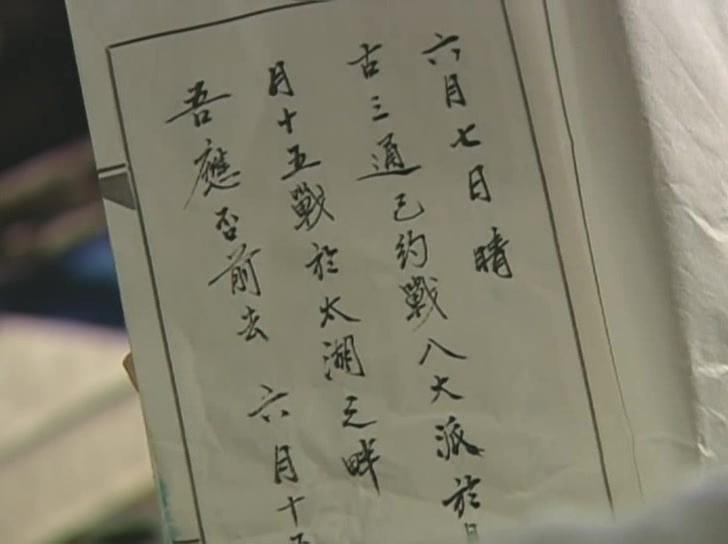 六月七日 晴
古三通已約戰八大派於
月十五戰於太湖之畔
吾應否前去 六月十